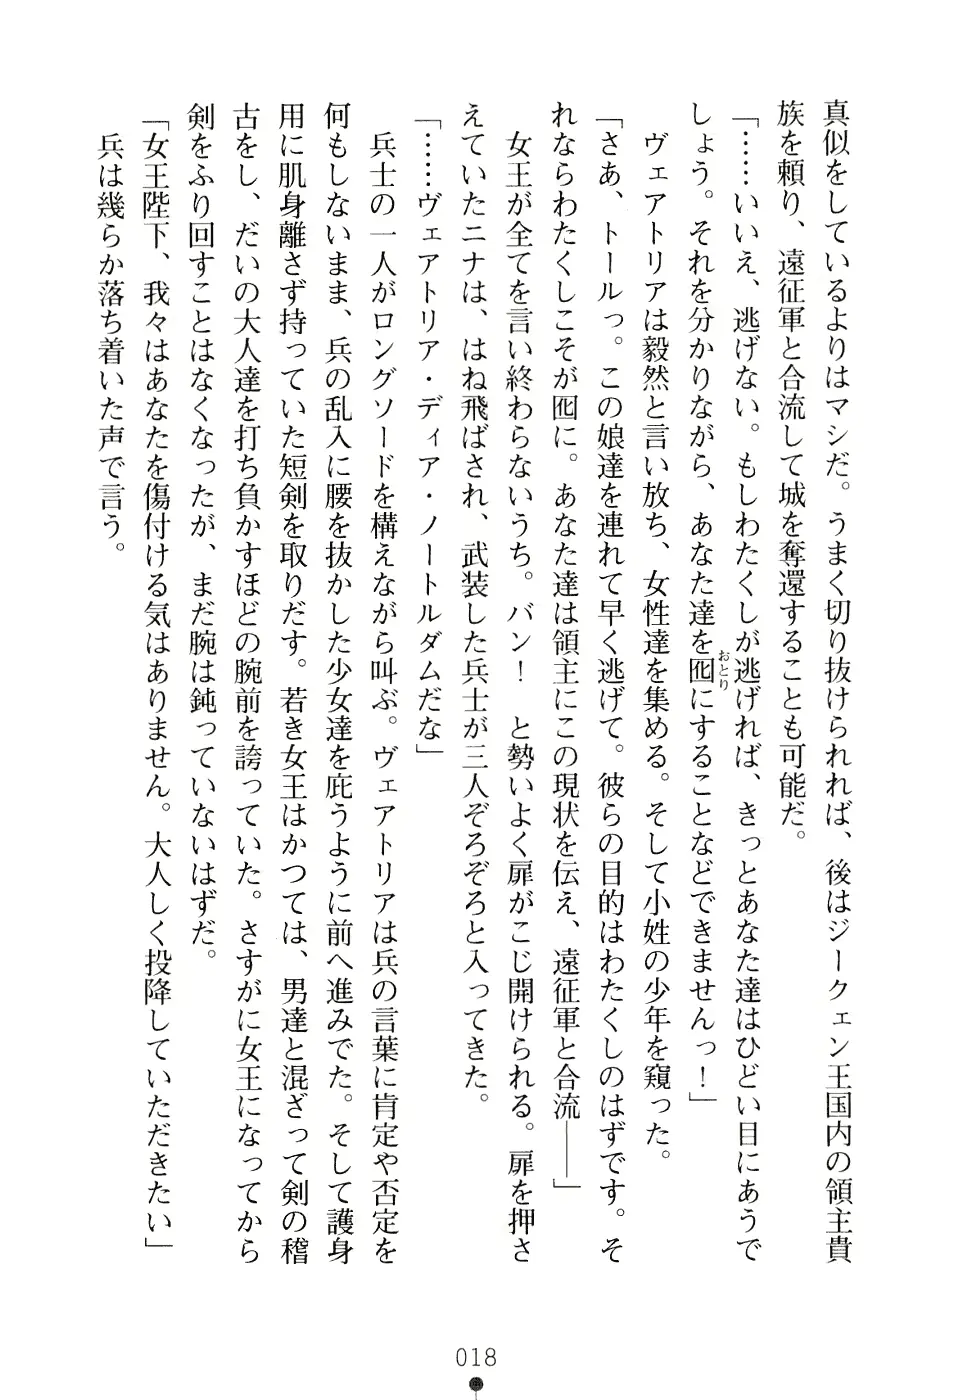 真似をしているよりはマシだ。うまく切り抜けられれば、後はジークェン王国内の領主貴
族を頼り、遠征軍と合流して城を奪還することも可能だ。
「……いいえ、逃げない。もしわたくしが逃げれば、きっとあなた達はひどい目にあうで
しょう。それを分かりながら、あなた達を囮おとりにすることなどできませんっ！」
　ヴェアトリアは毅然と言い放ち、女性達を集める。そして小姓の少年を窺った。
「さあ、トールっ。この娘達を連れて早く逃げて。彼らの目的はわたくしのはずです。そ
れならわたくしこそが囮に。あなた達は領主にこの現状を伝え、遠征軍と合流――」
　女王が全てを言い終わらないうち。バン！　と勢いよく扉がこじ開けられる。扉を押さ
えていたニナは、はね飛ばされ、武装した兵士が三人ぞろぞろと入ってきた。
「……ヴェアトリア・ディア・ノートルダムだな」
　兵士の一人がロングソードを構えながら叫ぶ。ヴェアトリアは兵の言葉に肯定や否定を
何もしないまま、兵の乱入に腰を抜かした少女達を庇うように前へ進みでた。そして護身
用に肌身離さず持っていた短剣を取りだす。若き女王はかつては、男達と混ざって剣の稽
古をし、だいの大人達を打ち負かすほどの腕前を誇っていた。さすがに女王になってから
剣をふり回すことはなくなったが、まだ腕は鈍っていないはずだ。
「女王陛下、我々はあなたを傷付ける気はありません。大人しく投降していただきたい」
　兵は幾らか落ち着いた声で言う。
018